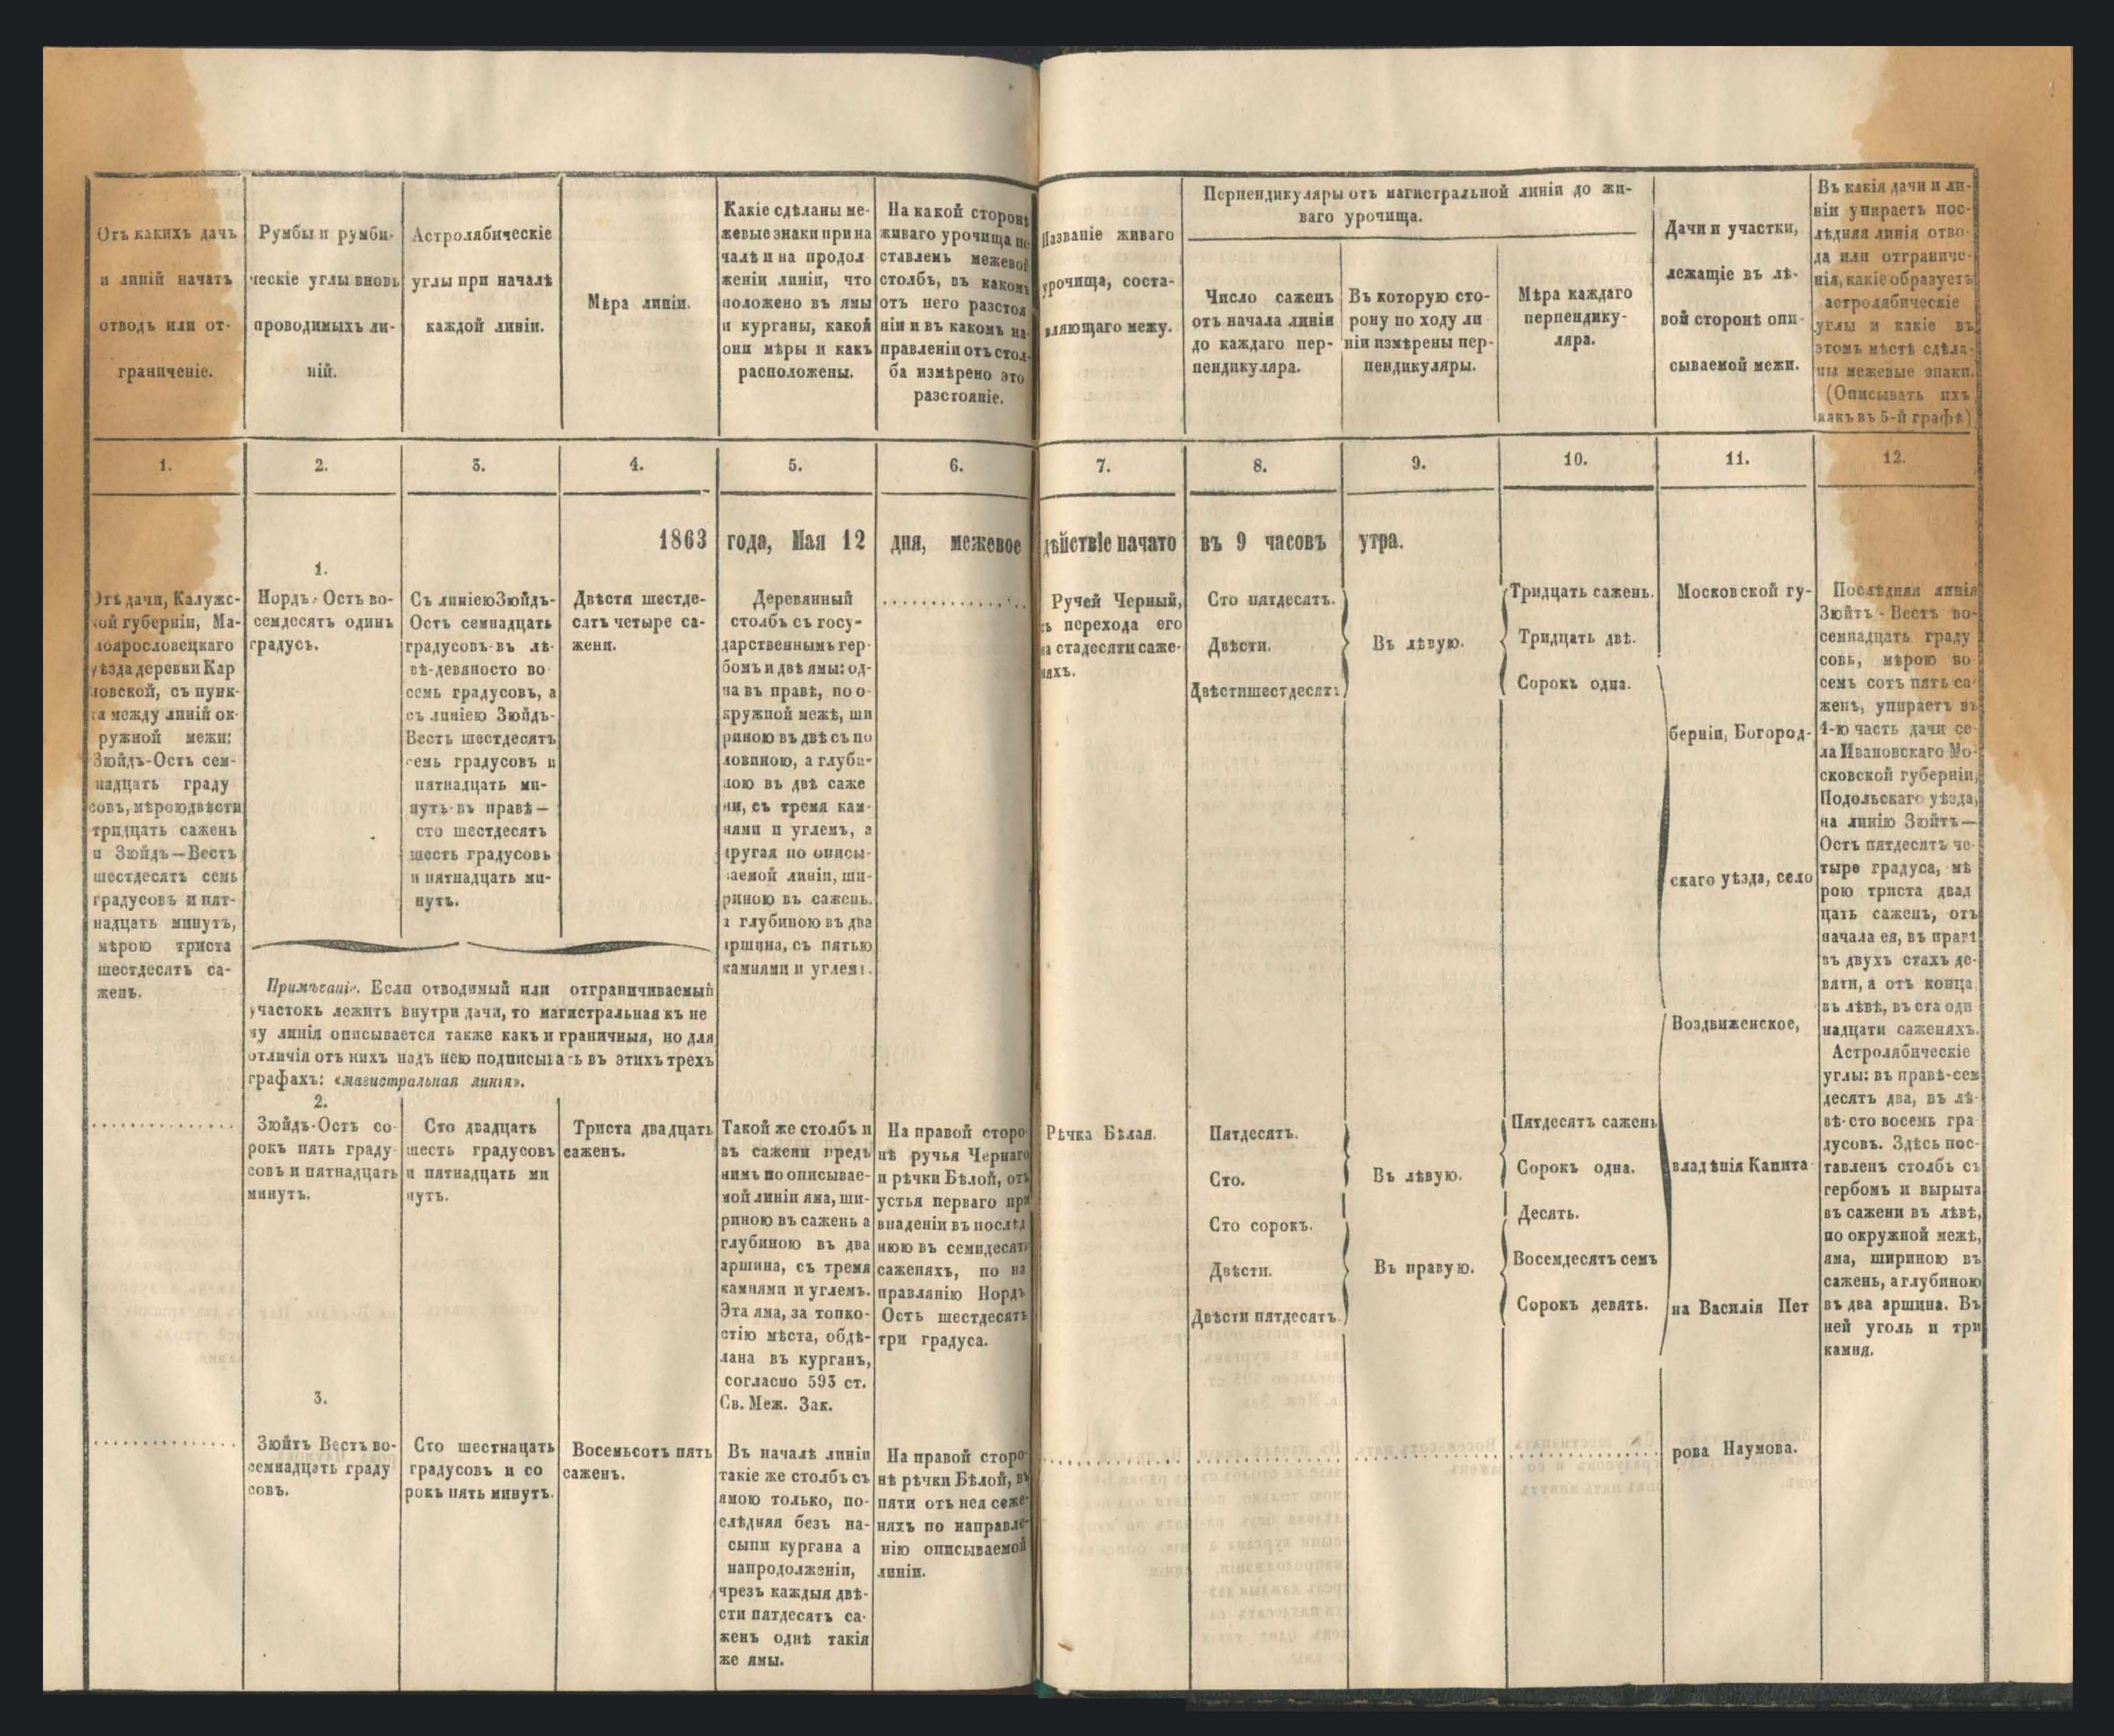 Отъ какихъ дачъ
и линій начать
отводъ или от-
граниченіе.
Румбы и румби-
ческіе углы вновь
проводимыхъ ли-
ній.
Астролябическіе
углы при началѣ
каждой линіи.
Мѣра линіи.
Какіе сдѣланы ме-
жевые знаки при на
чалѣ и на продол
женіи линіи, что
положено въ ямы
и курганы, какой
они мѣры и какъ
расположены.
На какой сторонѣ
живаго урочища по
ставленъ межевой
столбъ, въ какомъ
отъ него разстоя
ніи и въ какомъ на
правленіи отъ стол-
ба измѣрено это
разстояніе.
Названіе живаго
урочища, соста-
вляющаго межу.
Перпендикуляры отъ магистральной линіи до жи-
ваго урочища.
Число саженъ
отъ начала линіи
до каждаго пер-
пендикуляра.
Въ которую сто-
рону по ходу ли
ніи измѣрены пер-
пендикуляры.
Мѣра каждаго
перпендику-
ляра.
Дачи и участки,
лежащіе въ лѣ-
вой сторонѣ опи-
сываемой межи.
Въ какія дачи и ли-
ніи упираетъ пос-
лѣдняя линія отво-
да или отграниче-
нія, какіе образуетъ
астролябическіе
углы и какіе въ
этомъ мѣстѣ сдѣла-
ны межевые знаки.
(Описывать ихъ
какъ въ 5-й графѣ)
1.
2.
3.
4.
5.
6.
7.
8.
9.
10.
11.
12.
1863 года, Мая 12 дня, межевое дѣйствіе начато въ 9 часовъ утра.
Отъ дачи, Калужс-
кой губерніи, Ма-
лоярославецкаго
уѣзда деревни Кар
ловской, съ пунк-
та между линій ок-
ружной межи:
Зюйдъ-Остъ сем-
надцать граду
совъ, мѣрою двѣсти
тридцать саженъ
и Зюйдъ—Вестъ
шестдесятъ семь
градусовъ и пят-
надцать минутъ,
мѣрою триста
шестдесятъ са-
женъ.
1.
Нордъ-Остъ во-
семдесятъ одинъ
градусъ.
Съ линіею Зюйдъ-
Остъ семнадцать
градусовъ-въ лѣ-
вѣ-девяносто во
семь градусовъ, а
съ линіею Зюйдъ-
Вестъ шестдесятъ
семь градусовъ и
пятнадцать ми-
нутъ-въ правѣ—
сто шестдесятъ
шесть градусовъ
и пятнадцать ми-
нутъ.
Двѣстя шестде-
сятъ четыре са-
жени.
Деревянный
столбъ съ госу-
дарственнымъ гер-
бомъ и двѣ ямы: од-
на въ правѣ, по о-
кружной межѣ, ши
риною въ двѣ съ по
ловиною, а глуби-
ною въ двѣ саже
ни, съ тремя кам-
нями и углемъ, а
другая по описы-
ваемой линіи, ши-
риною въ сажень.
а глубиною въ два
аршина, съ пятью
камнями и углемъ.
..............
Ручей Черный,
съ перехода его
на стадесяти саже-
няхъ.
Сто пятдесятъ.
Двѣсти.
Двѣстишестдесятъ
Въ лѣвую.
Тридцать сажень.
Тридцать двѣ.
Сорокъ одна.
Московской гу-
берніи, Богород-
скаго уѣзда, село
Воздвиженское,
владѣнія Капита-
на Василія Пет
рова Наумова.
Послѣдняя линія
Зюйтъ-Вестъ во-
семнадцать граду
совъ, мѣрою во
семь сотъ пять са-
женъ, упираетъ въ
4-ю часть дачи се-
ла Ивановскаго Мо-
сковской губерніи,
Подольскаго уѣзда,
на линію Зюйтъ—
Остъ пятдесятъ че-
тыре градуса, мѣ
рою триста двад
цать саженъ, отъ
начала ея, въ правѣ
въ двухъ стахъ де-
вяти, а отъ конца
въ лѣвѣ, въ ста оди
надцати саженяхъ.
Астролябическіе
углы: въ правѣ-сем
десятъ два, въ лѣ-
вѣ-сто восемь гра
дусовъ. Здѣсь пос-
тавленъ столбъ съ
гербомъ и вырыта
въ сажени въ лѣвѣ,
по окружной межѣ,
яма, шириною въ
сажень, а глубиною
въ два аршина. Въ
ней уголь и три
камня.
Примѣчаніе. Если отводимый или отграничиваемый
участокъ лежитъ внутри дачи, то магистральная къ не
му линія описывается также какъ и граничныя, но для
отличія отъ нихъ надъ нею подписывать въ этихъ трехъ
графахъ: «магистральная линія».
...............
2.
Зюйдъ-Остъ со-
рокъ пять граду-
совъ и пятнадцать
минутъ.
Сто двадцать
шесть градусовъ
и пятнадцать ми
нутъ.
Триста двадцать
саженъ.
Такой же столбъ и
въ сажени предъ
нимъ по описывае-
мой линіи яма, ши-
риною въ сажень а
глубиною въ два
аршина, съ тремя
камнями и углемъ.
Эта яма, за топко-
стію мѣста, обдѣ-
лана въ курганъ,
согласно 593 ст.
Св. Меж. Зак.
На правой сторо-
нѣ ручья Чернаго
и рѣчки Бѣлой, отъ
устья перваго при
впаденіи въ послѣд
нюю въ семидесяти
саженяхъ, по на
правлянію Нордъ
Остъ шестдесятъ
три градуса.
Рѣчка Бѣлая.
Пятдесятъ.
Сто.
Сто сорокъ.
Двѣсти.
Двѣсти пятдесятъ.
Въ лѣвую.
Въ правую.
Пятдесятъ сажень
Сорокъ одна.
Десять.
Восемдесятъ семь
Сорокъ девять.
...............
3.
Зюйтъ Вестъ во-
семнадцать граду
совъ.
Сто шестнацать
градусовъ и со
рокъ пять минутъ.
Восемьсотъ пять
саженъ.
Въ началѣ линіи
такіе же столбъ съ
ямою только, по-
слѣдняя безъ на-
сыпи кургана а
напродолженіи,
чрезъ каждыя двѣ-
сти пятдесятъ са-
женъ однѣ такія
же ямы.
На правой сторо-
нѣ рѣчки Бѣлой, въ
пяти отъ нея саже-
няхъ по направле-
нію описываемой
линіи.
..............
..............
..............
..............